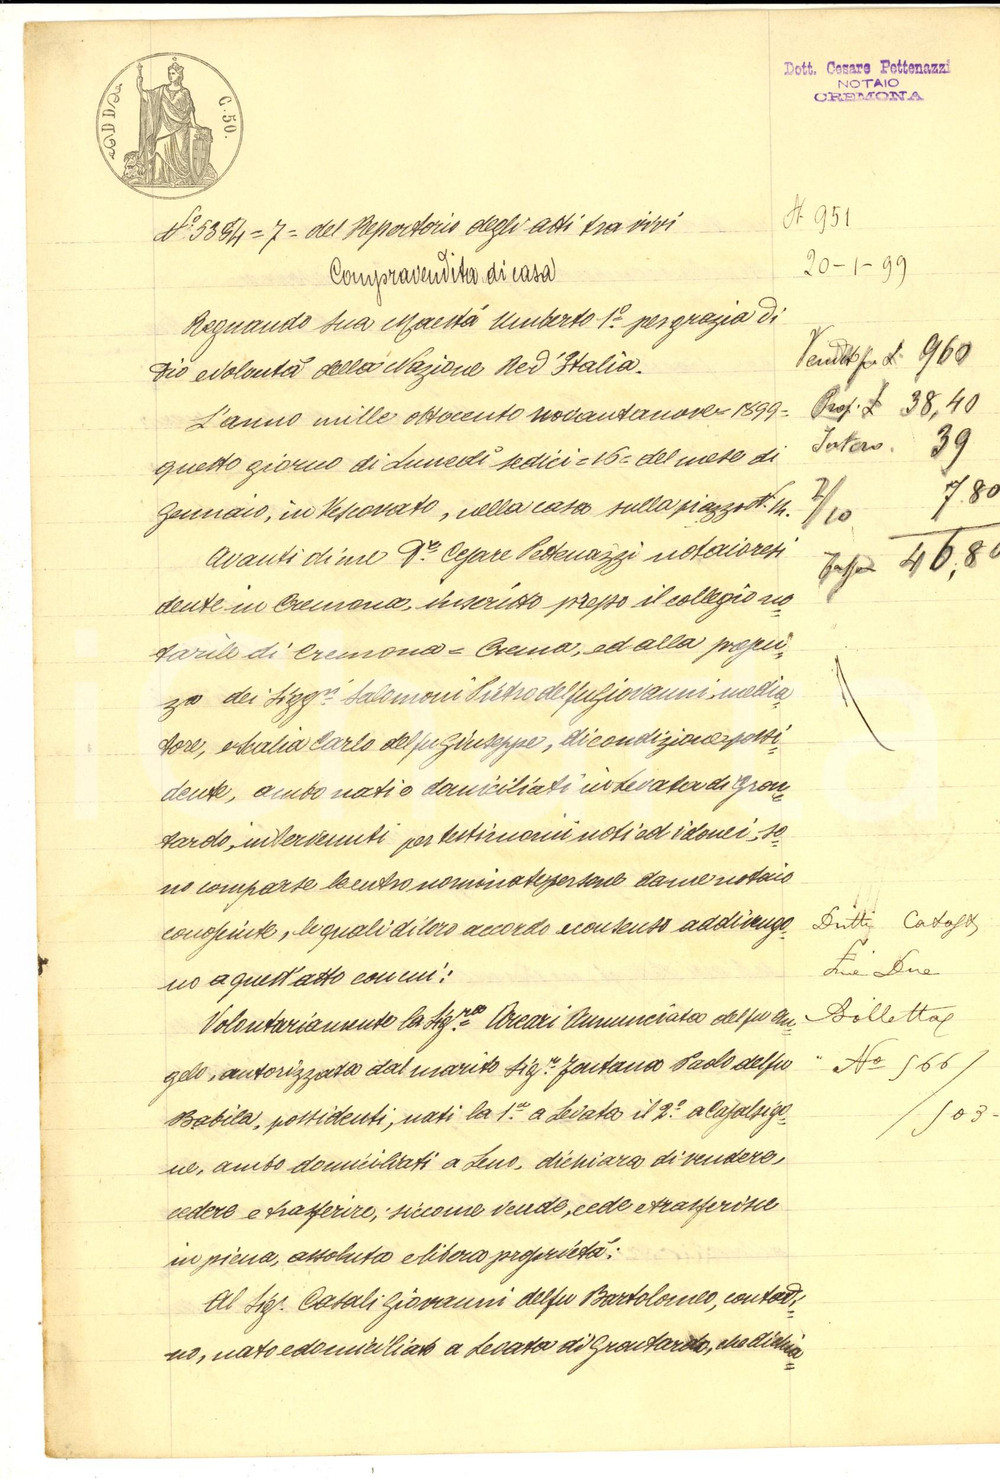 C. 50.
Dott. Cesare Pettenazzi
NOTAIO
CREMONA
N.º 5354=7= del Repertorio degli atti tra vivi
N 951
20-1-99
Compravendita di casa
Regnando Sua Maestà Umberto 1º per grazia di
Dio e Volontà della Nazione Re d'Italia.
L'anno mille ottocento novantanove = 1899 =
questo giorno di Lunedì sedici = 16 = del mese di
Gennaio, in Vescovato, nella casa sulla piazza N.
Avanti di me D.r Cesare Pettenazzi notaio resi
dente in Cremona, inscritto presso il collegio no=
tarile di Cremona = Crema, ed alla presen=
za dei Sigg.ri Salomoni Pietro del fu Giovanni, media
tore, e Malia Carlo del fu Giuseppe, di condizione possi=
dente, ambo nati e domiciliati in Levata di Gron=
tardo, intervenuti per testimonii noti ed idonei, so=
no comparse le entro nominate persone da me notaio
conosciute, le quali di loro accordo e consenso addivengo=
no a quest'atto con cui:
Volontariamente la Sig.ra Arcari Annunciata del fu An=
gelo, autorizzata dal marito Sig.r Fontana Paolo del fu
Babila, possidenti, nati la 1.a a Levata il 2.º a Casalsigo=
ne, ambo domiciliati a Leno, dichiara di vendere,
cedere e trasferire, siccome vende, cede e trasferisce
in piena, assoluta e libera proprietà:
Al Sig. Casali Giovanni del fu Bartolomeo, contadi=
no, nato e domiciliato a Levata di Grontardo, che dichia=
960
Prop. L 38,40
Intero. 39
2/10 7.80
46,80
Diritti Catasto
Lire Due
Bolletta
Nº 566
503-